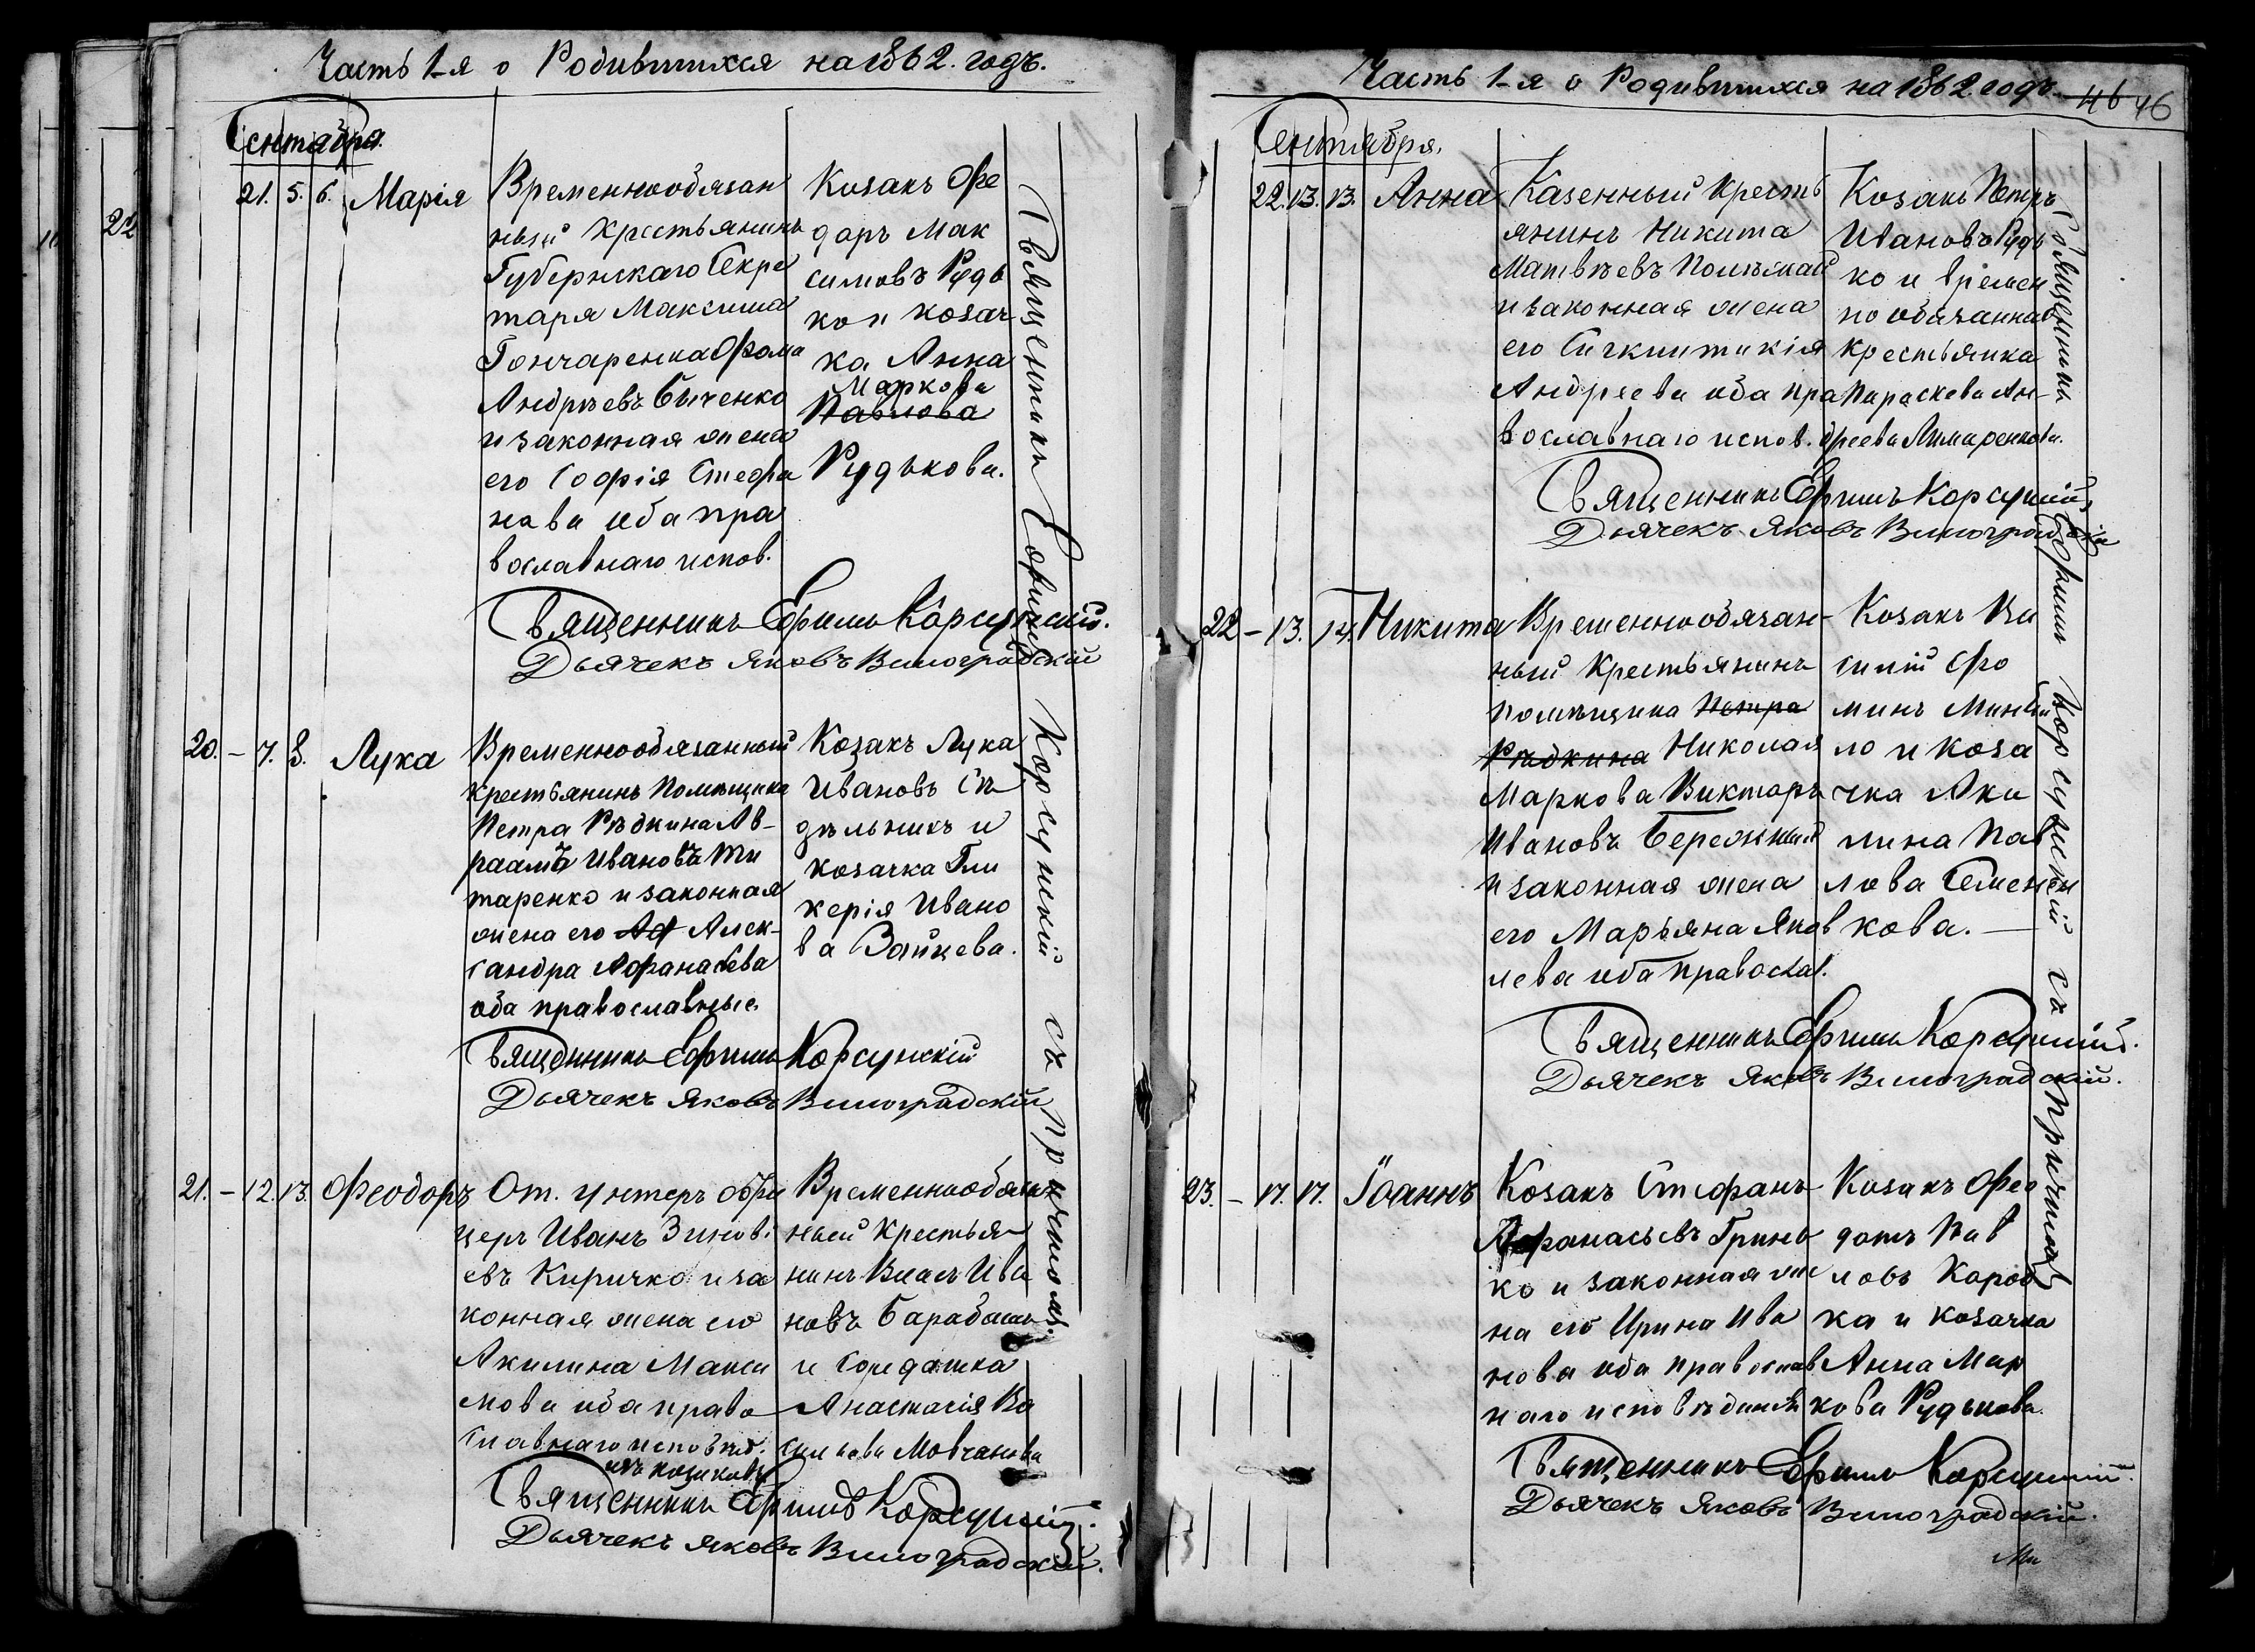 Часть 1-я о Родившихся на 1862. годъ.
Сентября.
21. 5. 6. Марія
Временнообязан
ный крестьянинъ
Губернскаго Секре
таря Максима
Гончаренка Фома
Андреевъ Быченко
и законная жена
его Софія Стефа
нова оба пра
вославнаго испов.
Козакъ Фе
доръ Мак
симовъ Рудь
ко и козач
ка Анна
Маркова
Павлова
Рудькова.
Священникъ Ефимъ Корсунскій.
Дьячекъ Яковъ Виноградскій
20. – 7. 8. Лука
Временнообязанный
крестьянинъ Помѣщика
Петра Рѣдкина Ав-
раамъ Ивановъ Ти
таренко и законная
жена его Аф Алек-
сандра Афанасьева
оба православные.
Козакъ Лука
Ивановъ Сѣ
дѣльникъ и
козачка Гли
керія Ивано
ва Зайцева.
Священникъ Ефимъ Корсунскій
Дьячекъ Яковъ Виноградскій
21. – 12. 13. Феодоръ
От. унтеръ офи
церъ Иванъ Зиновь
евъ Киричко и за
конная жена его
Акилина Макси
мова оба право
славнаго исповѣд.
изъ козаковъ
Временнообязан
ный крестья
нинъ Власъ Ива
новъ Барабашъ
и солдатка
Анастасія Ва
сильева Мовчанова
Священникъ Ефимъ Корсунскій.
Дьячекъ Яковъ Виноградскій.
Священникъ Ефимъ Корсунскій съ причтомъ.
22
Часть 1-я о Родившихся на 1862 годъ. 46 46
Сентября.
22. 13. 13. Анна
Казенный кресть
янинъ Никита
Матвѣевъ
и законная жена
его Синклитикія
Андреева оба пра
вославнаго испов.
Козакъ Петръ
Ивановъ Рудь
ко и времен
но обязанная
крестьянка
Параскева Ан-
дреева Лимаренкова.
Священникъ Ефимъ Корсунскій
Дьячекъ Яковъ Виноградскій
22 – 13. 14. Никита
Временнообязан-
ный крестьянинъ
помѣщика Петра
Рѣдкина Николая
Маркова Викторъ
Ивановъ Бережный
и законная жена
его Марьяна Яков
лева оба православ.
Козакъ Ва
силій Фо
минъ Минай
ло и коза
чка Аки
лина Пав
лова Семен
кова.
Священникъ Ефимъ Корсунскій.
Дьячекъ Яковъ Виноградскій.
23. – 17. 17. Іоаннъ
Козакъ Стефанъ
Афанасьевъ Гринь
ко и законная же
на его Ирина Ива
нова оба православ
наго исповѣданія
Козакъ Фео
дотъ Пав
ловъ Короб
ка и козачка
Анна Мар
кова Рудькова.
Священникъ Ефимъ Корсунскій.
Дьячекъ Яковъ Виноградскій.
Священникъ Ефимъ Корсунскій съ причтомъ